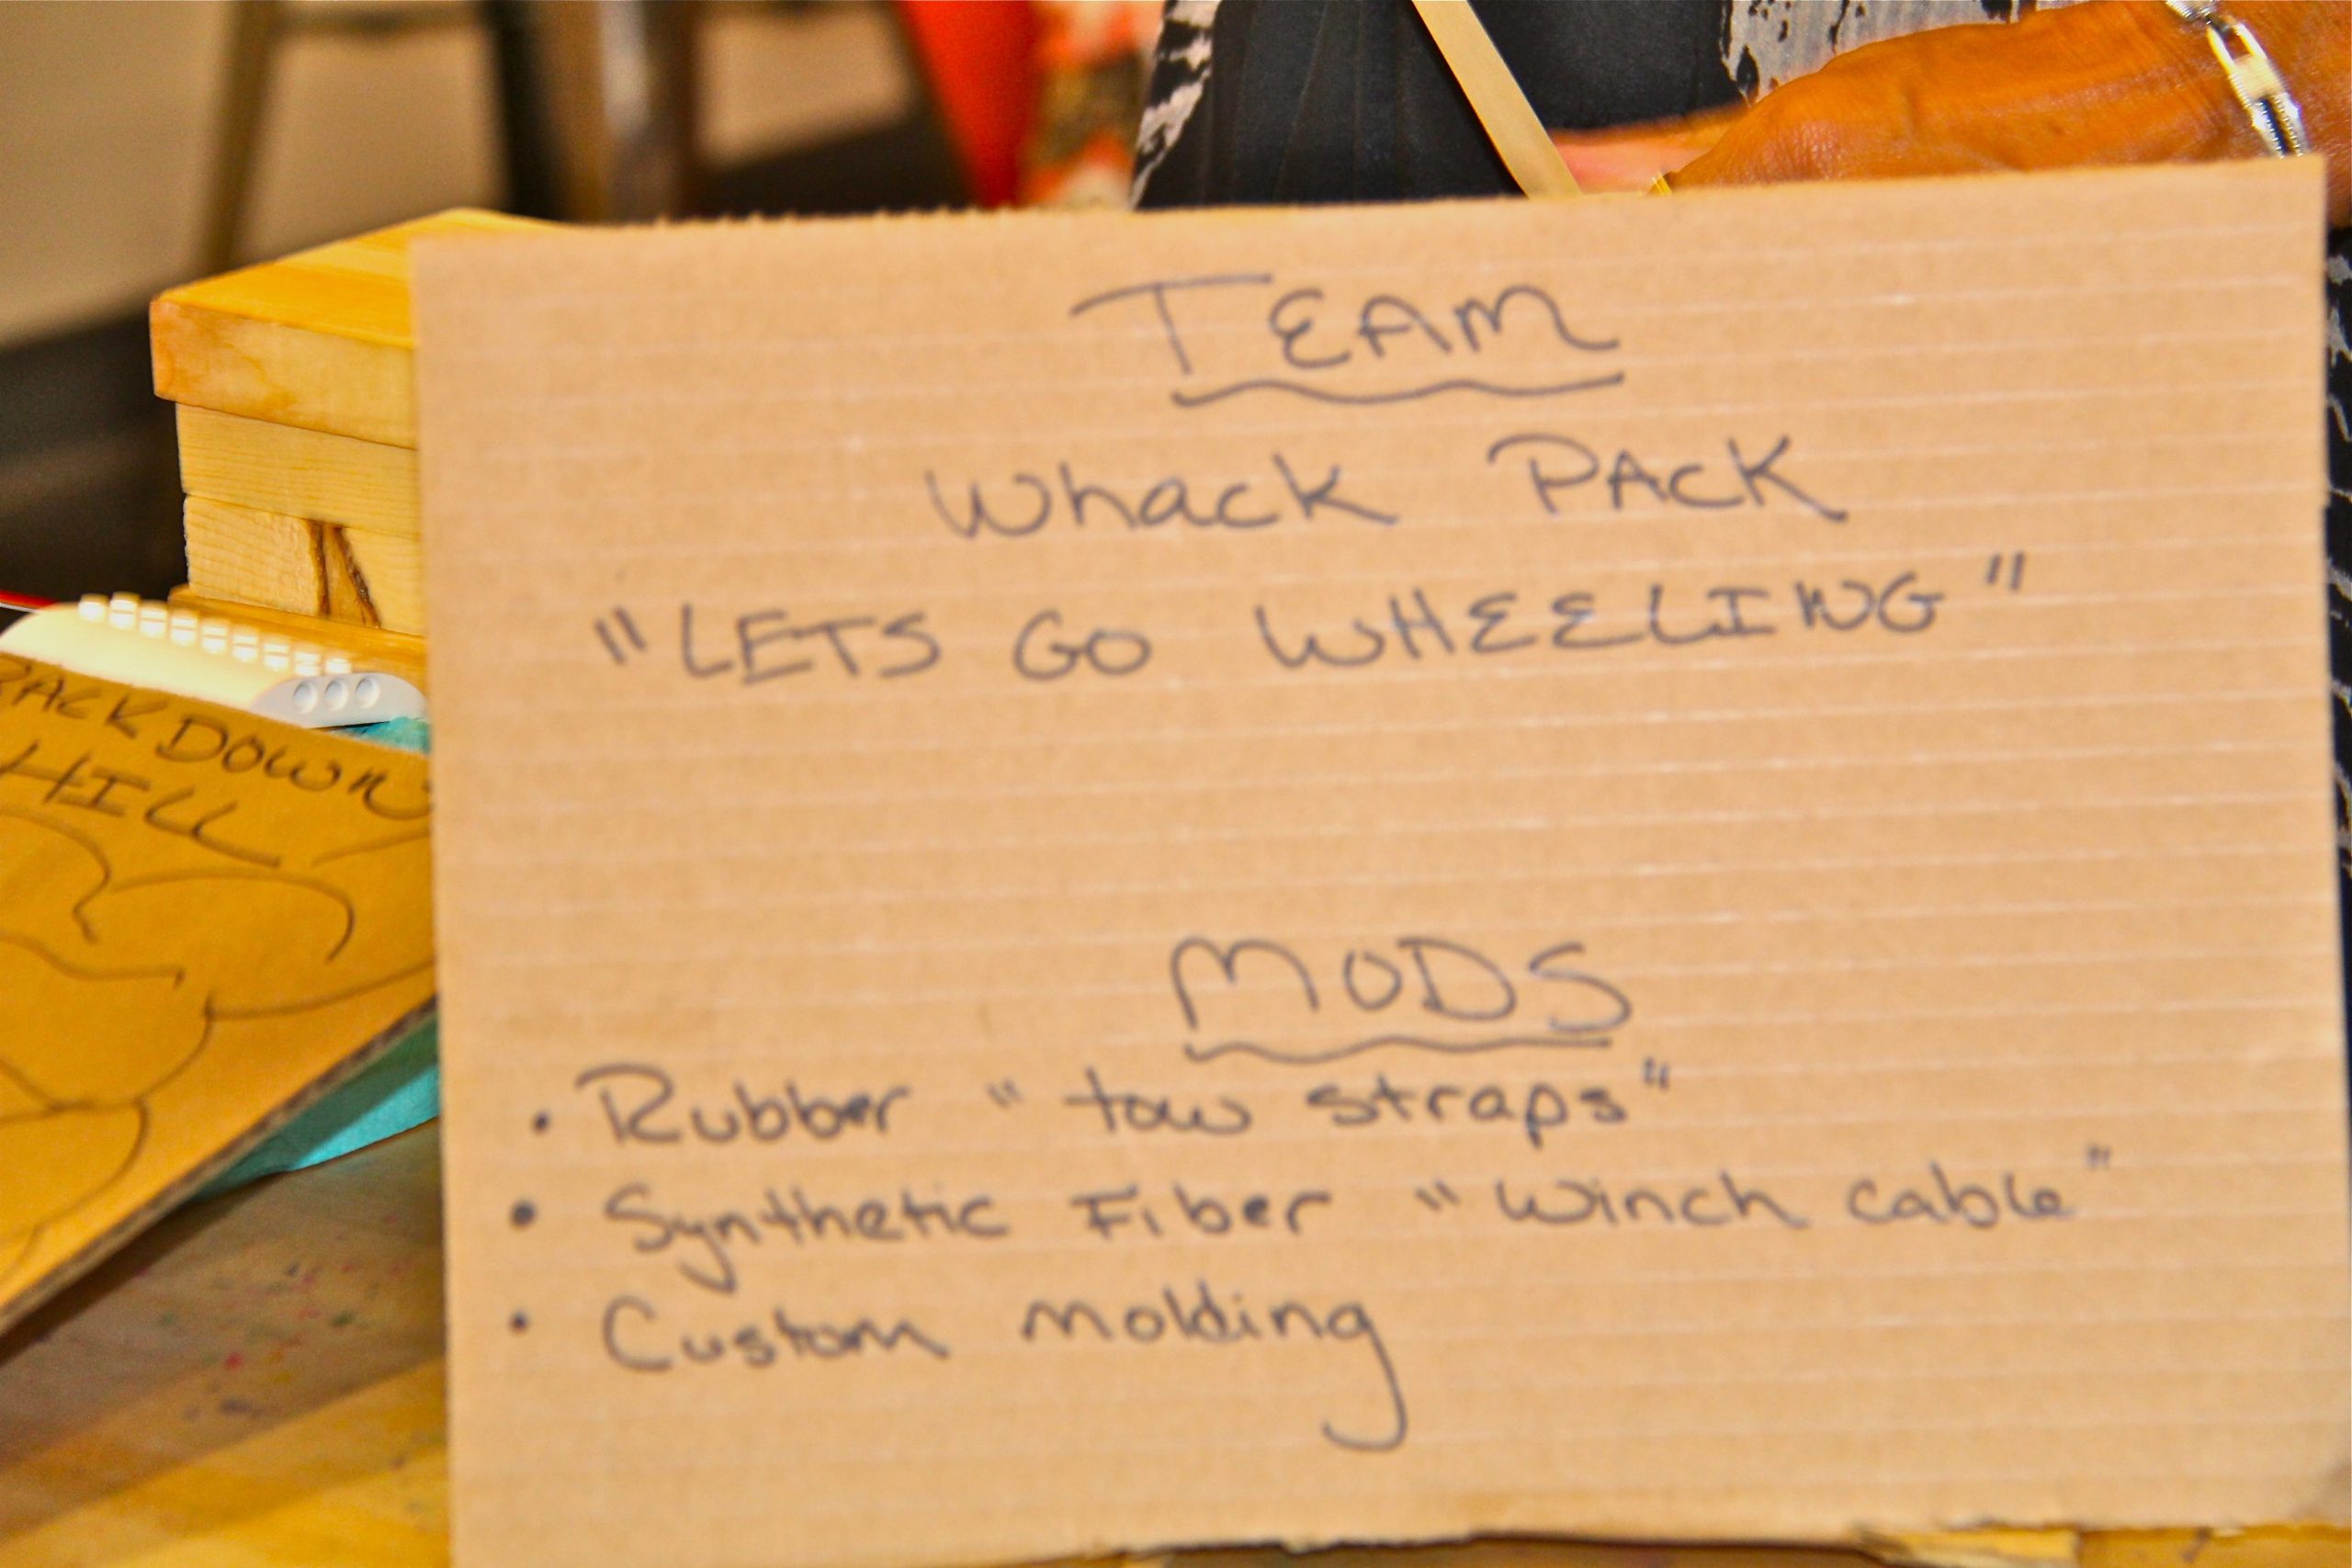 TEAM
Whack PACK
"LETS GO WHEELING"
MODS
• Rubber "tow straps"
• Synthetic Fiber "Winch cable"
• Custom molding
DOWN
HILL